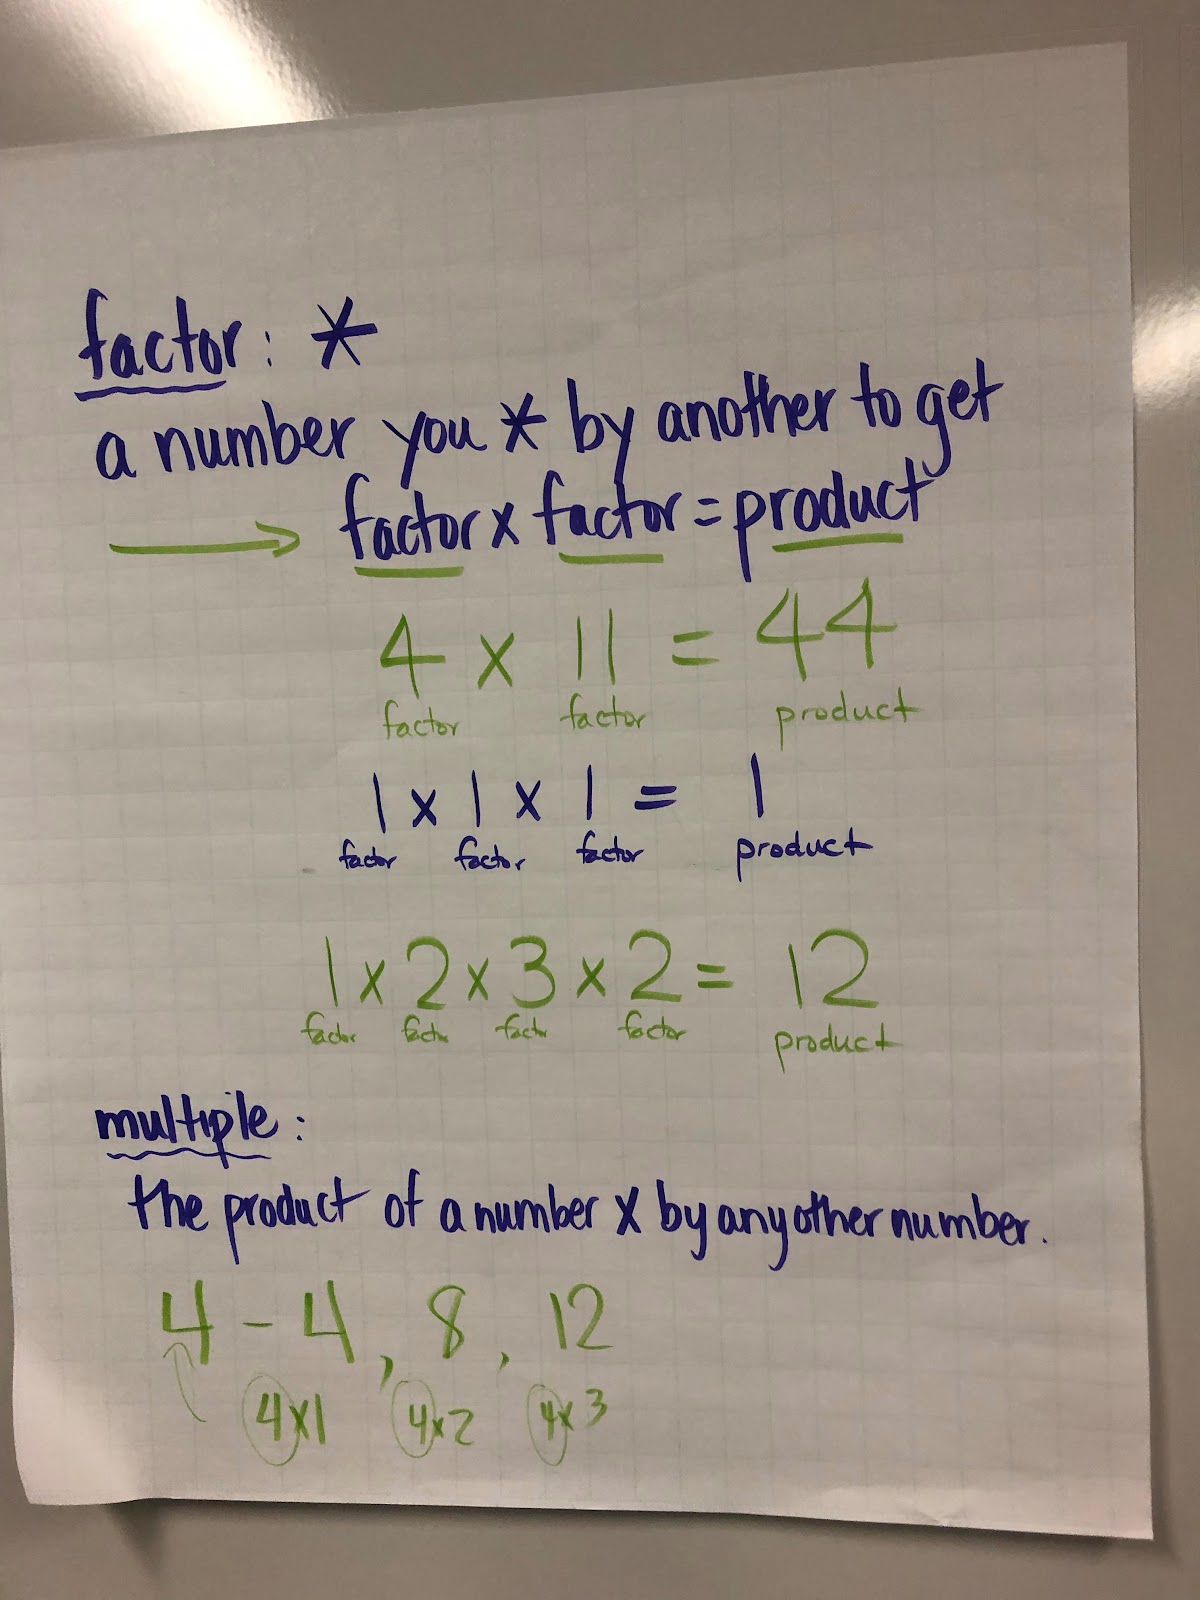 factor: *
a number you * by another to get
factor x factor = product
4 x 11 = 44
factor factor product
1 x 1 x 1 = 1
factor factor factor product
1 x 2 x 3 x 2 = 12
factor factor factor factor product
multiple:
the product of a number x by any other number.
4 - 4, 8, 12
4x1 4x2 4x3